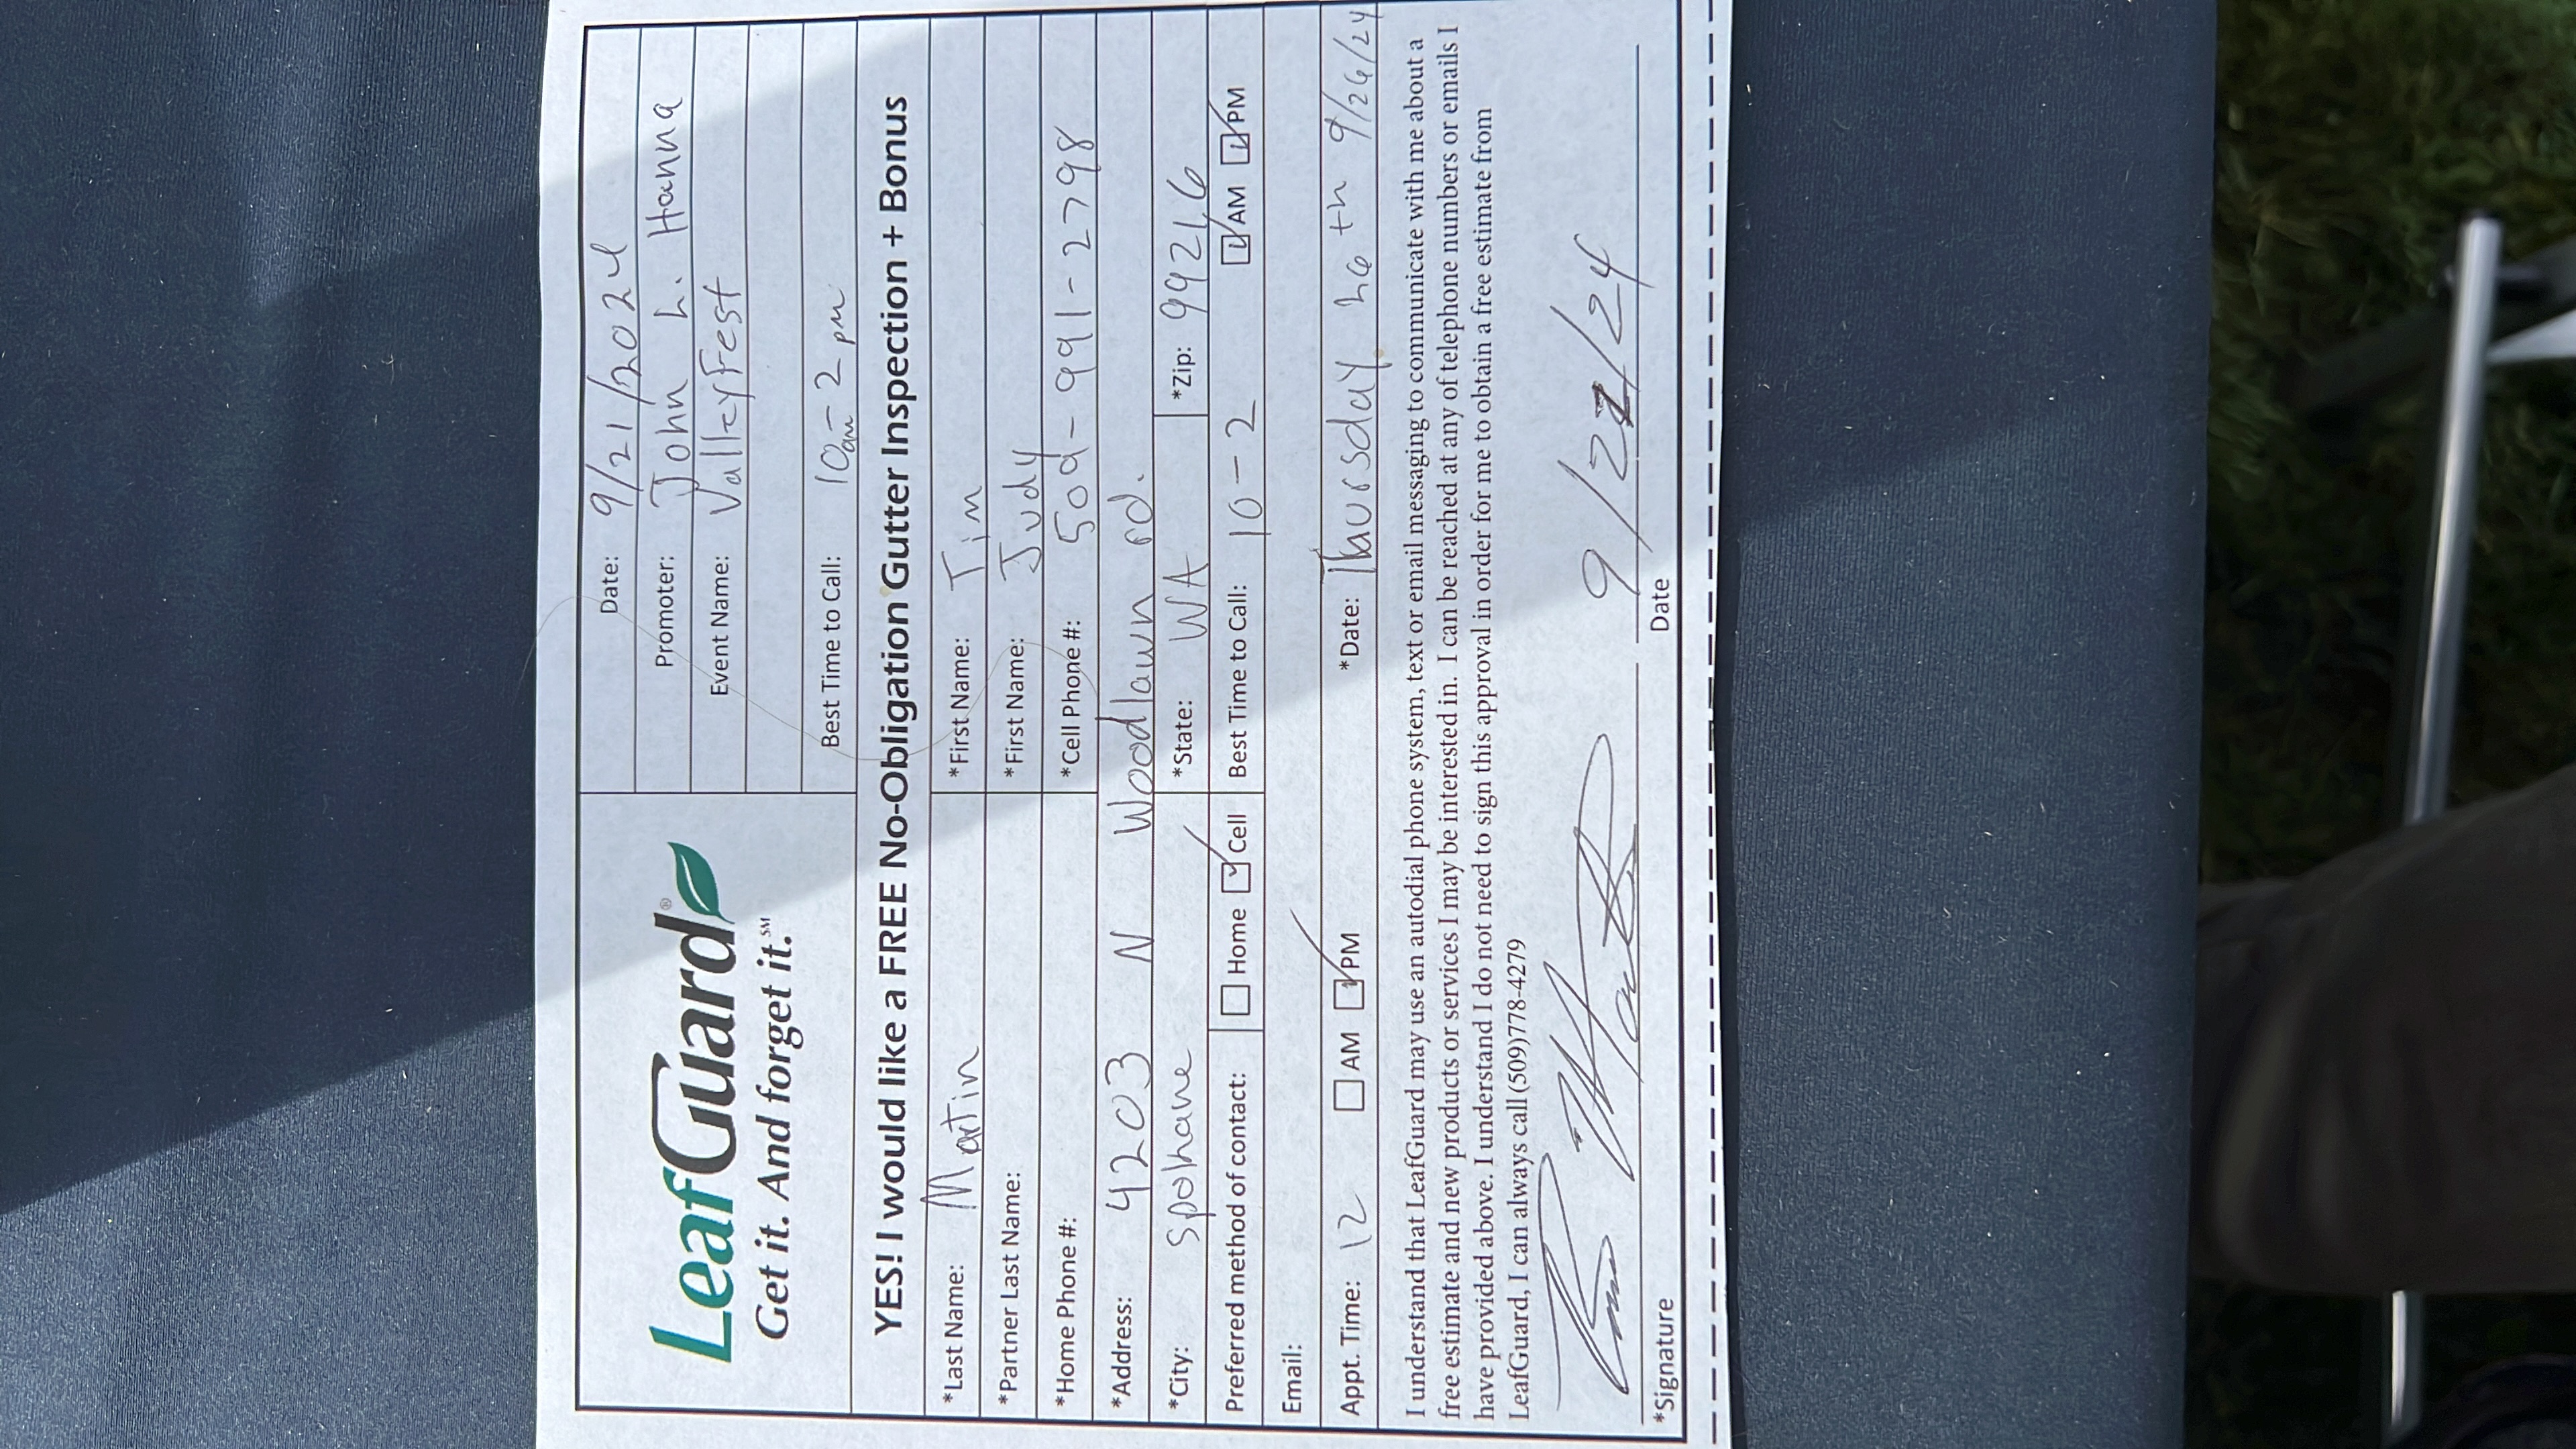 Date: 9/21/2024
LeafGuard®
Get it. And forget it.SM
Promoter: John L. Hanna
Event Name: ValleyFest
Best Time to Call: 10am - 2 pm
YES! I would like a FREE No-Obligation Gutter Inspection + Bonus
*Last Name: Martin *First Name: Tim
*Partner Last Name: *First Name: Judy
*Home Phone #: *Cell Phone #: 509-991-2798
*Address: 4203 N Woodlawn rd.
*City: Spokane *State: WA *Zip: 99216
Preferred method of contact: Home Cell Best Time to Call: 10-2 AM PM
Email:
Appt. Time: 12 AM PM *Date: Thursday 26th 9/26/24
I understand that LeafGuard may use an autodial phone system, text or email messaging to communicate with me about a
free estimate and new products or services I may be interested in. I can be reached at any of telephone numbers or emails I
have provided above. I understand I do not need to sign this approval in order for me to obtain a free estimate from
LeafGuard, I can always call (509)778-4279
9/21/24
*Signature Date